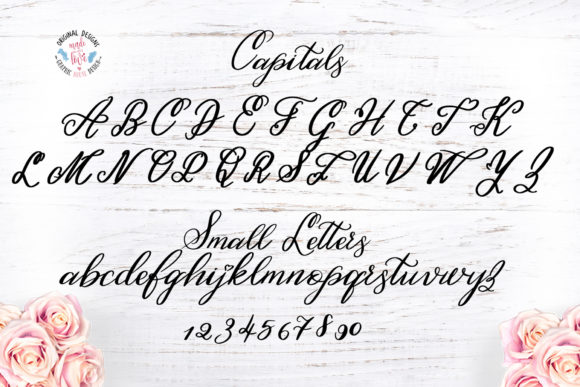 ORIGINAL DESIGNS
made with love
GRAPHIC HOUSE DESIGN
Capitals
A B C D E F G H I J K
L M N O P Q R S T U V W Y Z
Small Letters
abcdefghijklmnopqrstuvwyz
1234567890